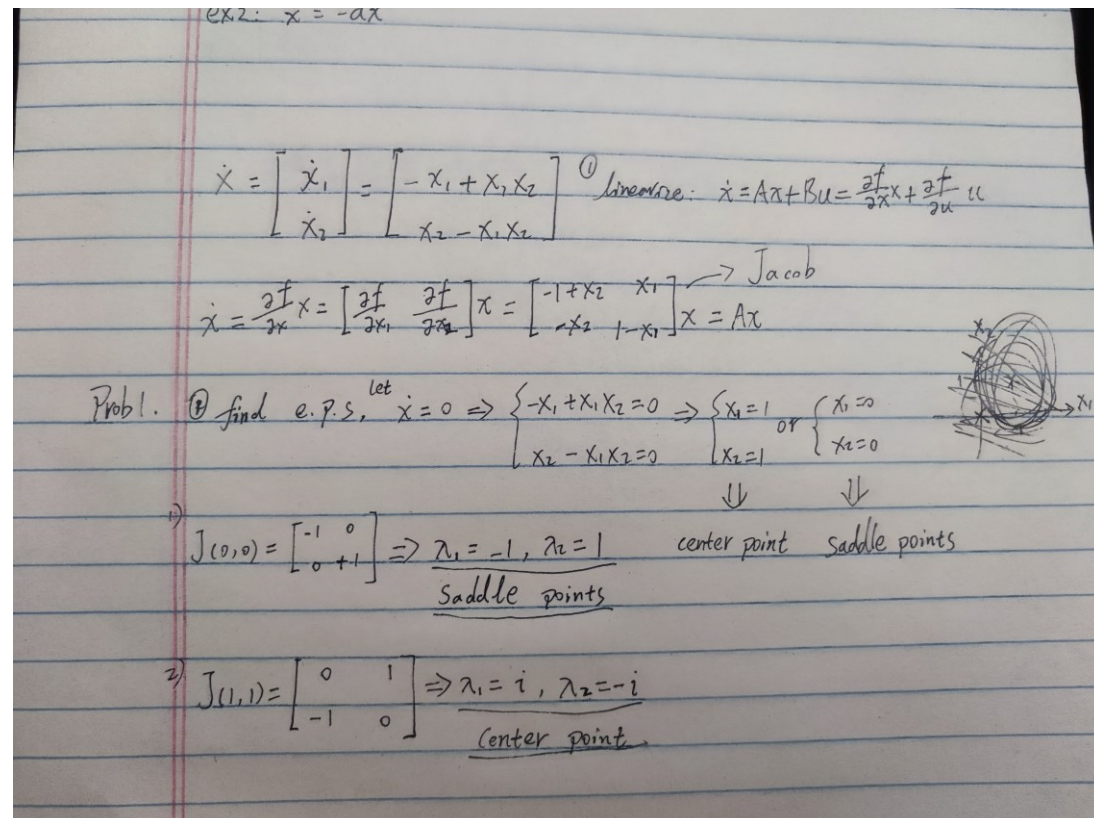 ex2: x = -ax
Ẋ = [ẋ₁; ẋ₂] = [-x₁ + x₁x₂; x₂ - x₁x₂] ① linearize: ẋ = Ax + Bu = ∂f/∂x x + ∂f/∂u u
ẋ = ∂f/∂x x = [∂f/∂x₁ ∂f/∂x₂] x = [-1+x₂ x₁; -x₂ 1-x₁] x = Ax → Jacob
Prob1. ② find e.p.s, let ẋ = 0 ⇒ {-x₁ + x₁x₂ = 0; x₂ - x₁x₂ = 0 ⇒ {x₁ = 1; x₂ = 1 or {x₁ = 0; x₂ = 0
x₂ x₁
⇓ ⇓
center point saddle points
1) J(0,0) = [-1 0; 0 +1] ⇒ λ₁ = -1, λ₂ = 1
Saddle points
2) J(1,1) = [0 1; -1 0] ⇒ λ₁ = i, λ₂ = -i
Center point